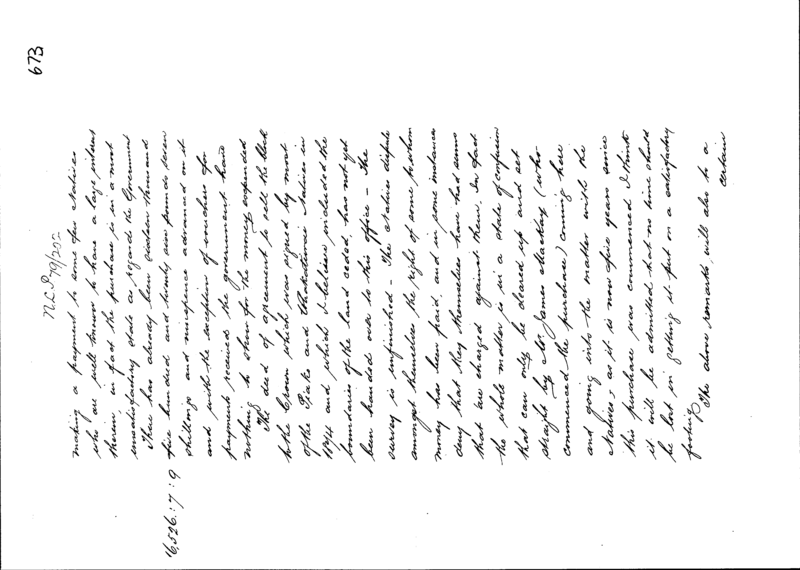 673
N.L.P 79/202
making a payment to some few Natives
who are well known to have a large interest
therein, in fact the purchase is in a most
unsatisfactory state as regards the Government
There has already been sixteen thousand
16,526 : 7 : 9 five hundred and twenty six pounds seven
shillings and ninepence advanced on it
and with the exception of vouchers for
payments received the government have
nothing to show for the money expended
The deed of agreement to sell the block
to the Crown which was signed by most
of the Piako and Natives in
1874 and which I believe included the
boundaries of the land ceded, has not yet
been handed over to this office – The
survey is unfinished – The Natives dispute
amongst themselves the right of some to whom
money has been paid, and in some instances
deny that they themselves have had sums
that are charged against them. In fact
the whole matter is in a state of confusion
that can only be cleared up and set
straight by Mr James Mackay (who
commenced the purchase) coming here
and going into the matter with the
Natives, as it is now five years since
this purchase was commenced I think
it will be admitted that no time should
be lost in getting it put on a satisfactory
footing
The above remarks will also to a
certain